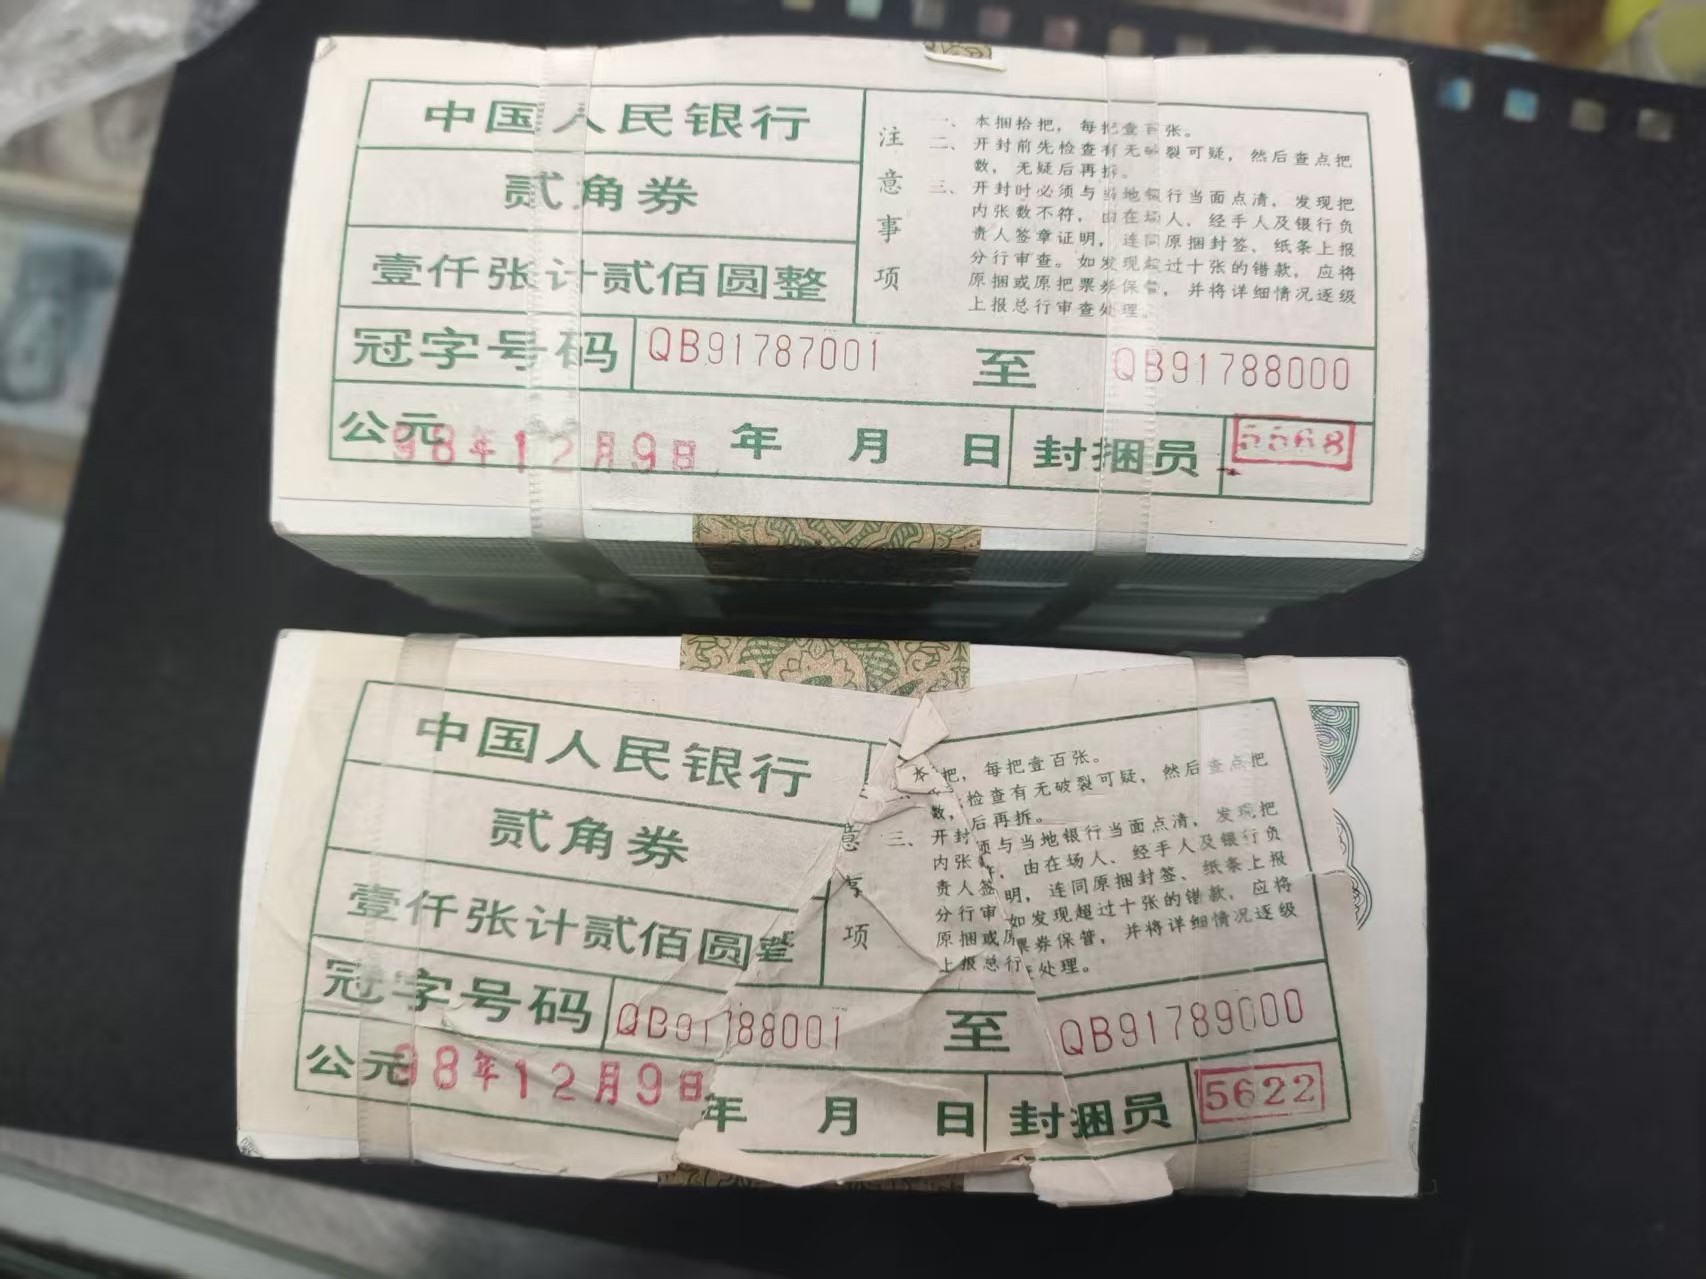 中国人民银行
贰角券
壹仟张计贰佰圆整
注意事项
一、本捆拾把，每把壹百张。
二、开封前先检查有无破裂可疑，然后查点把
数，无疑后再拆。
三、开封时必须与当地银行当面点清，发现把
内张数不符，由在场人、经手人及银行负
责人签章证明，连同原捆封签、纸条上报
分行审查。如发现超过十张的错款，应将
原捆或原把票券保管，并将详细情况逐级
上报总行审查处理。
冠字号码 QB91787001 至 QB91788000
公元 98年12月9日 年 月 日 封捆员 5568
中国人民银行
贰角券
壹仟张计贰佰圆整
意事项
本 把，每把壹百张。
检查有无破裂可疑，然后查点把
数， 后再拆。
三、开封 须与当地银行当面点清，发现把
内张 ，由在场人、经手人及银行负
责人签 明，连同原捆封签、纸条上报
分行审 如发现超过十张的错款，应将
原捆或原 票券保管，并将详细情况逐级
上报总行 处理。
冠字号码 QB91788001 至 QB91789000
公元 98年12月9日 年 月 日 封捆员 5622